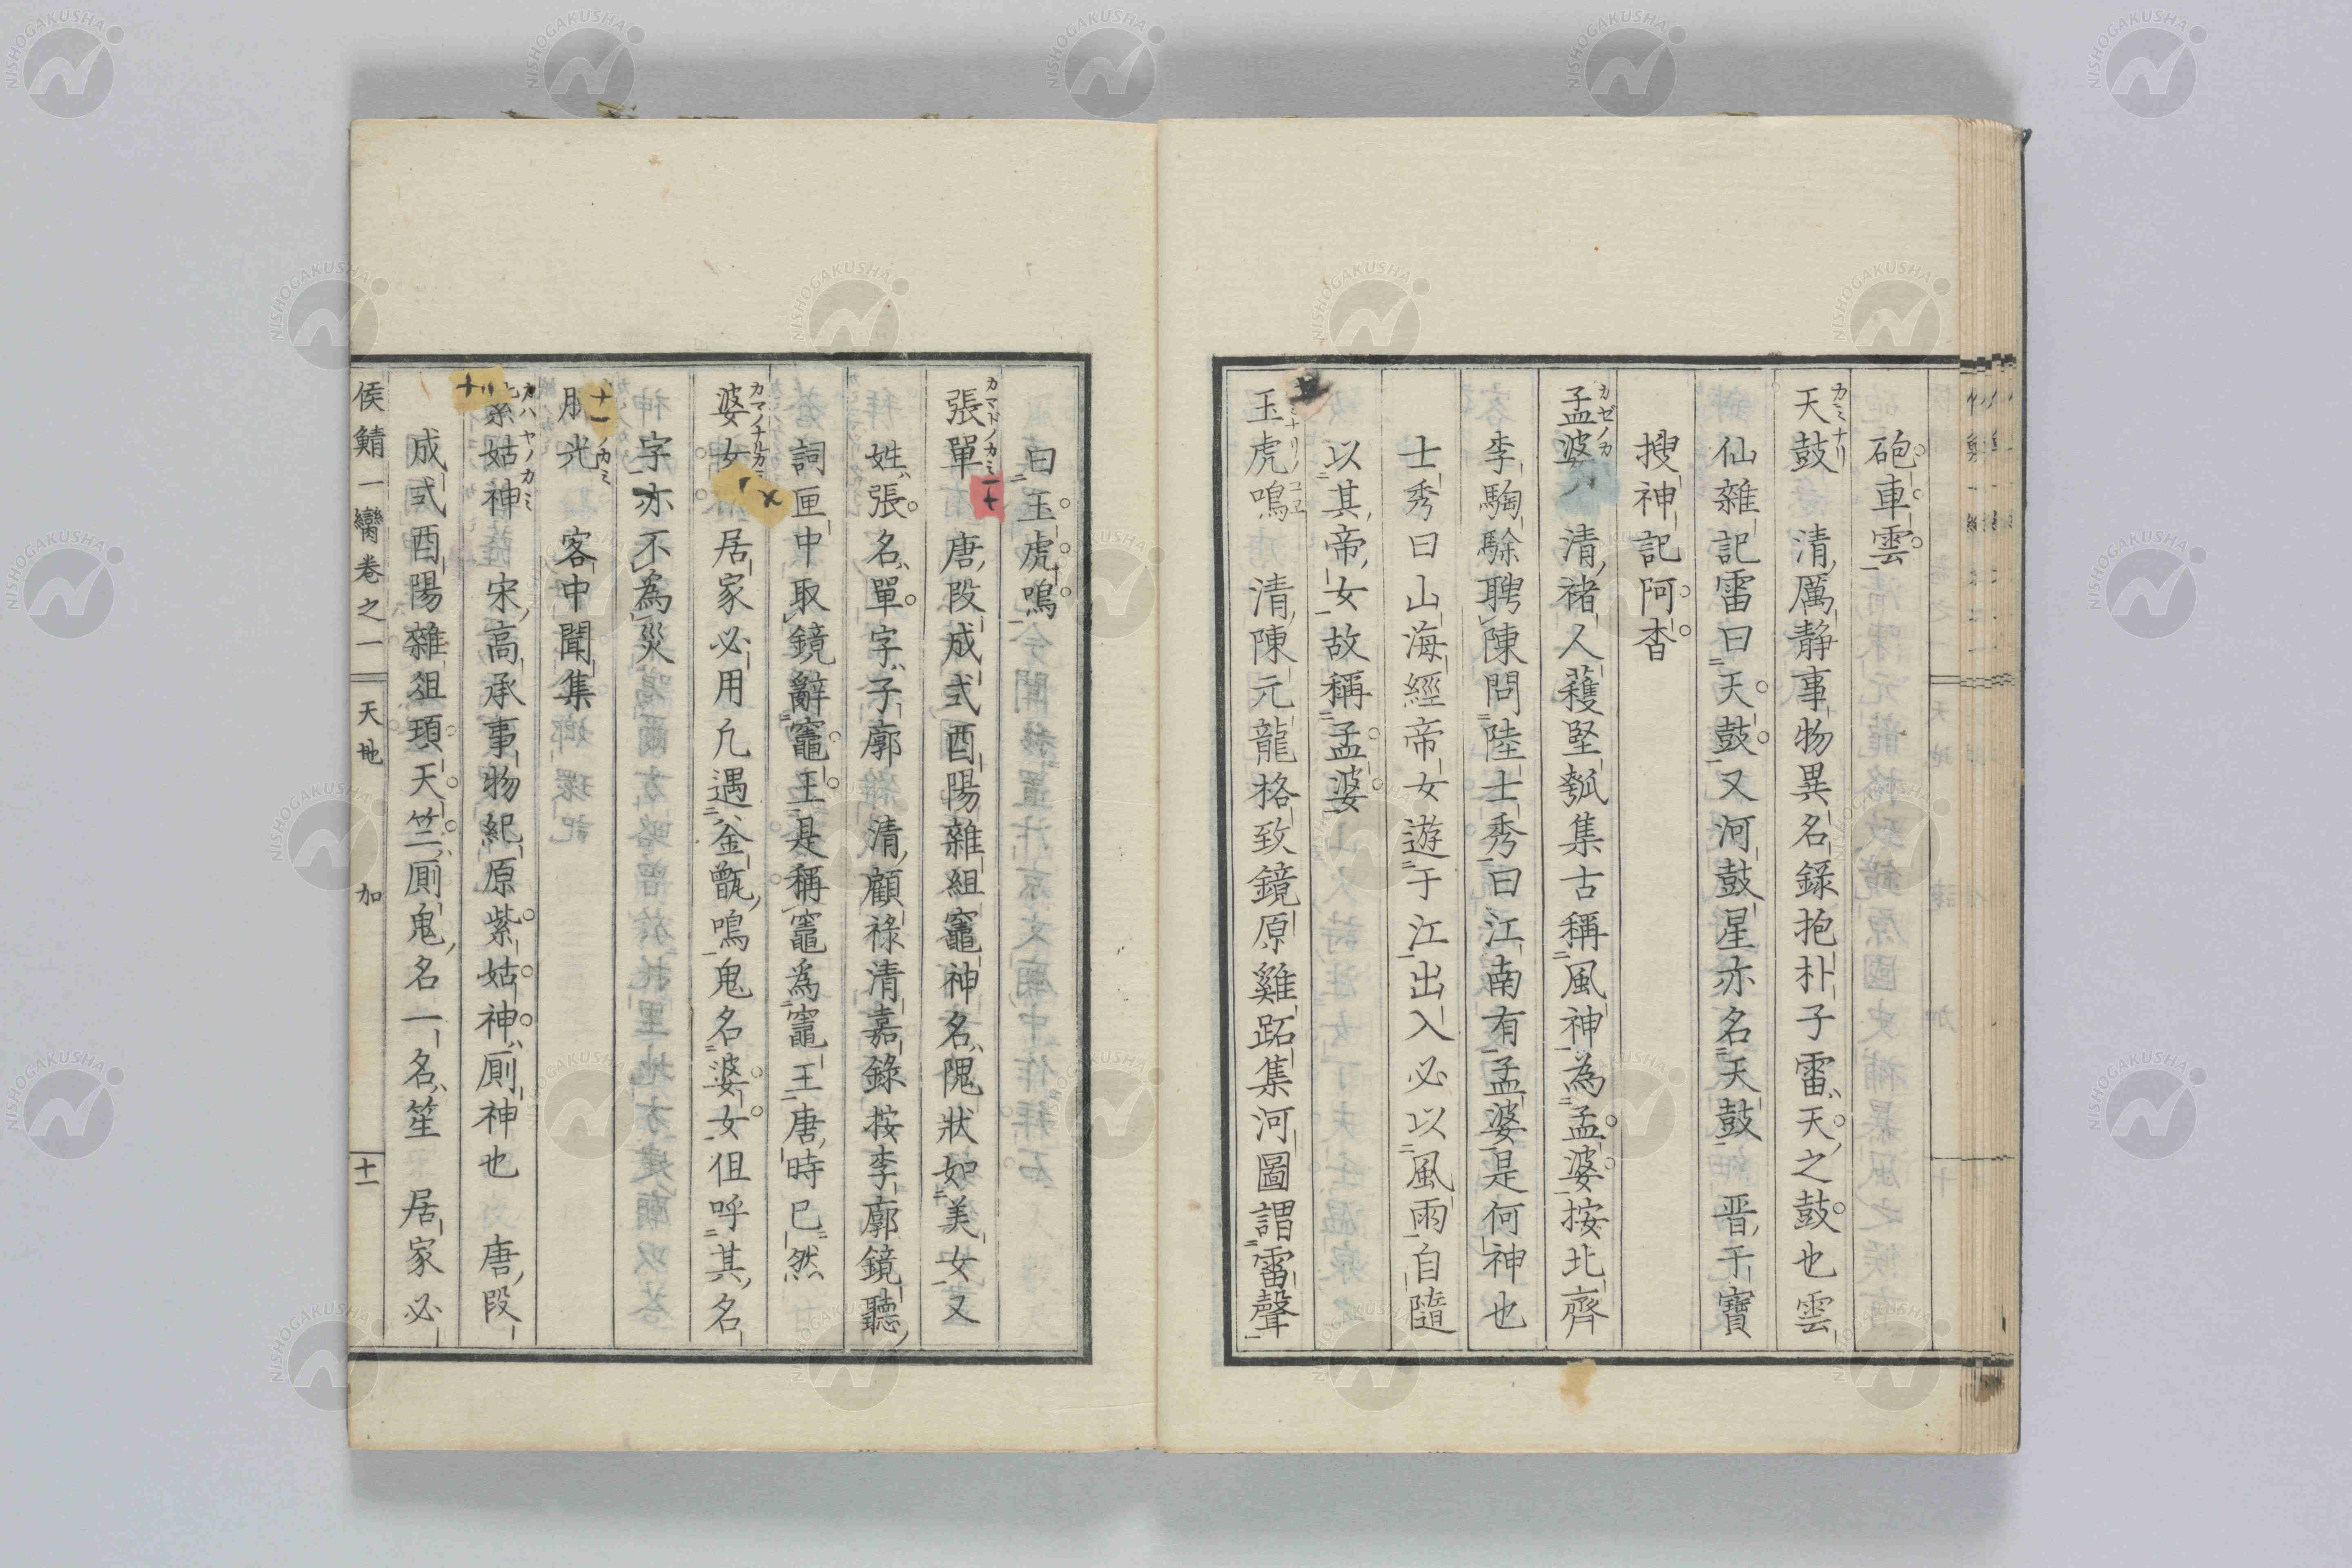 砲車雲
天鼓 清厲静事物異名錄抱朴子雷天之鼓也雲
仙雜記雷曰天鼓又河鼓星亦名天鼓 晋干寶
搜神記阿杳
孟婆 清褚人穫堅瓠集古稱風神為孟婆按北齊
李騊駼聘陳問陸士秀曰江南有孟婆是何神也
士秀曰山海經帝女遊于江出入必以風雨自隨
以其帝女故稱孟婆
玉虎鳴 清陳元龍格致鏡原雞跖集河圖謂雷聲
曰玉虎鳴
張單 唐段成式酉陽雜組竈神名隗狀如美女又
姓張名單字子廓 清顧祿清嘉錄按李廓鏡聽
詞匣中取鏡辭竈王是稱竈為竈王唐時已然
婆女 居家必用凢遇釜甑鳴鬼名婆女伹呼其名
字亦不為災
光 客中聞集
紫姑神 宋高承事物紀原紫姑神厠神也 唐段
成式酉陽雜俎頊天竺厠鬼名一名笙 居家必
侯鯖一臠卷之一 天地 加 十一